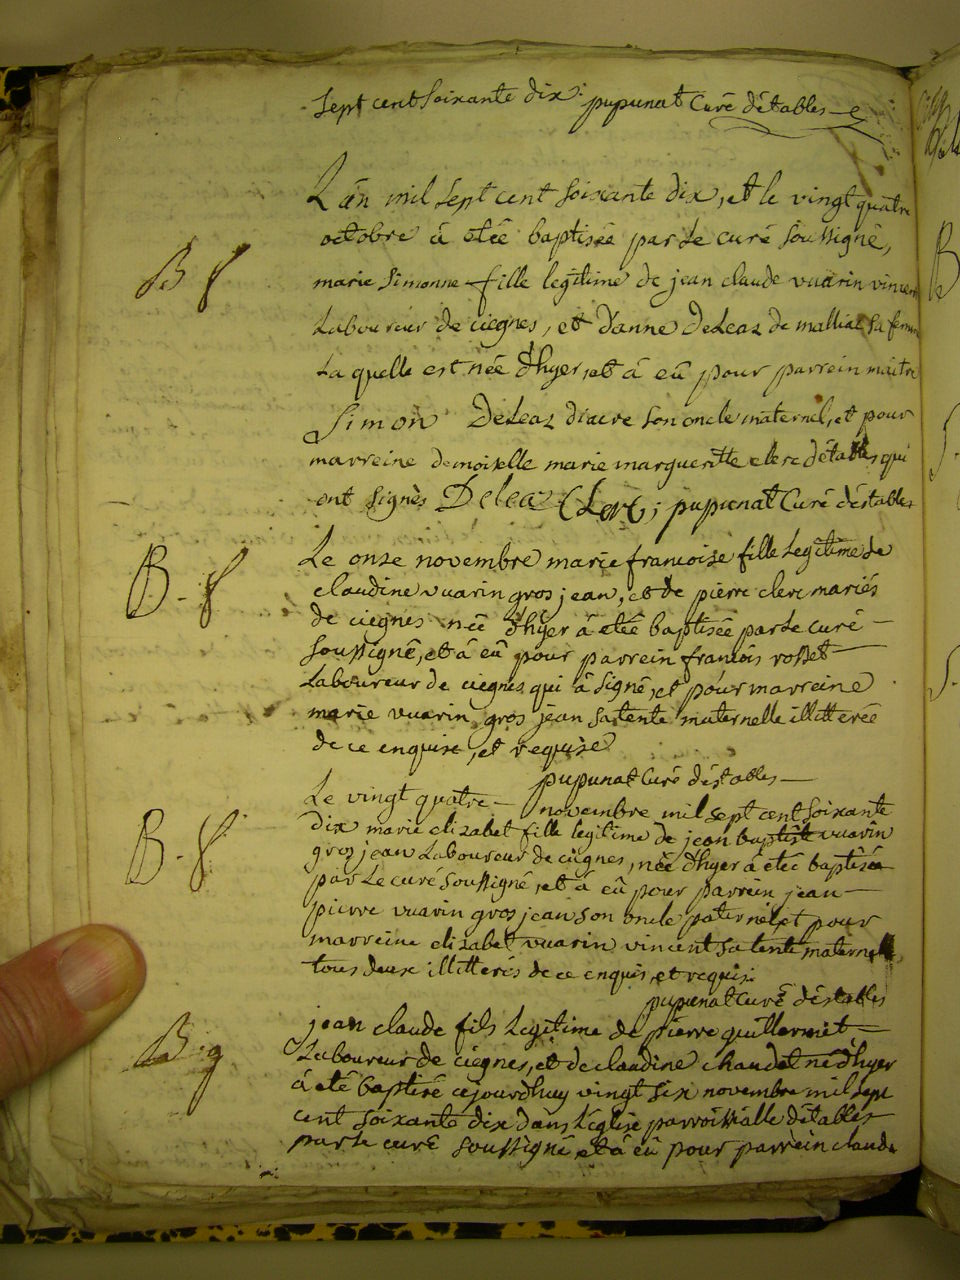 Sept cent Soixante dix: pupunat Curé déstables
L'an mil Sept cent Soixante dix, et le vingt quatre
octobre â etée baptisée par Le curé Soussigné,
B f
marie Simonne fille legitime de jean claude vuarin vincent
Laboureur de ciegnes, et d'anne DeLeaz de malliat Sa femme
La quelle est née d'hyer, et â eû pour parrein maitre
Simon DeLeaz diacre Son oncle maternel, et pour
marreine demoiselle marie margueritte clerc détables qui
ont Signés Deleaz Clerc; pupunat Curé déstables
B. f
Le onze novembre marie francoise fille Legitime de
claudine vuarin gros jean, et de pierre clerc mariés
de ciegnes née d'hyer â etée baptisée par Le curé
Soussigné, et â eû pour parrein francois rosset
Laboureur de ciegnes qui â Signé, et pour marreine
marie vuarin gros jean Sa tente maternelle illitterée
de ce enquise, et requise
pupunat Curé déstables
Le vingt quatre novembre mil Sept cent Soixante
B. f
dix marie elizabet fille legitime de jean baptiste vuarin
gros jean Laboureur de ciegnes, née d'hyer â etée baptisée
par Le curé Soussigné, et â eû pour parrein jean
pierre vuarin gros jean Son oncle paternel, et pour
marreine elizabet vuarin vincent Sa tente maternelle
tous deux illitterés de ce enquis, et requis.
pupunat Curé déstables
B. g
jean claude fils Legitime de pierre guillermet
Laboureur de ciegnes, et de claudine chaudet né d'hyer
â eté baptisé cejourdhuy vingt Six novembre mil Sept
cent Soixante dix dans L'église parroissialle détables
par Le curé Soussigné et â eû pour parrein claude